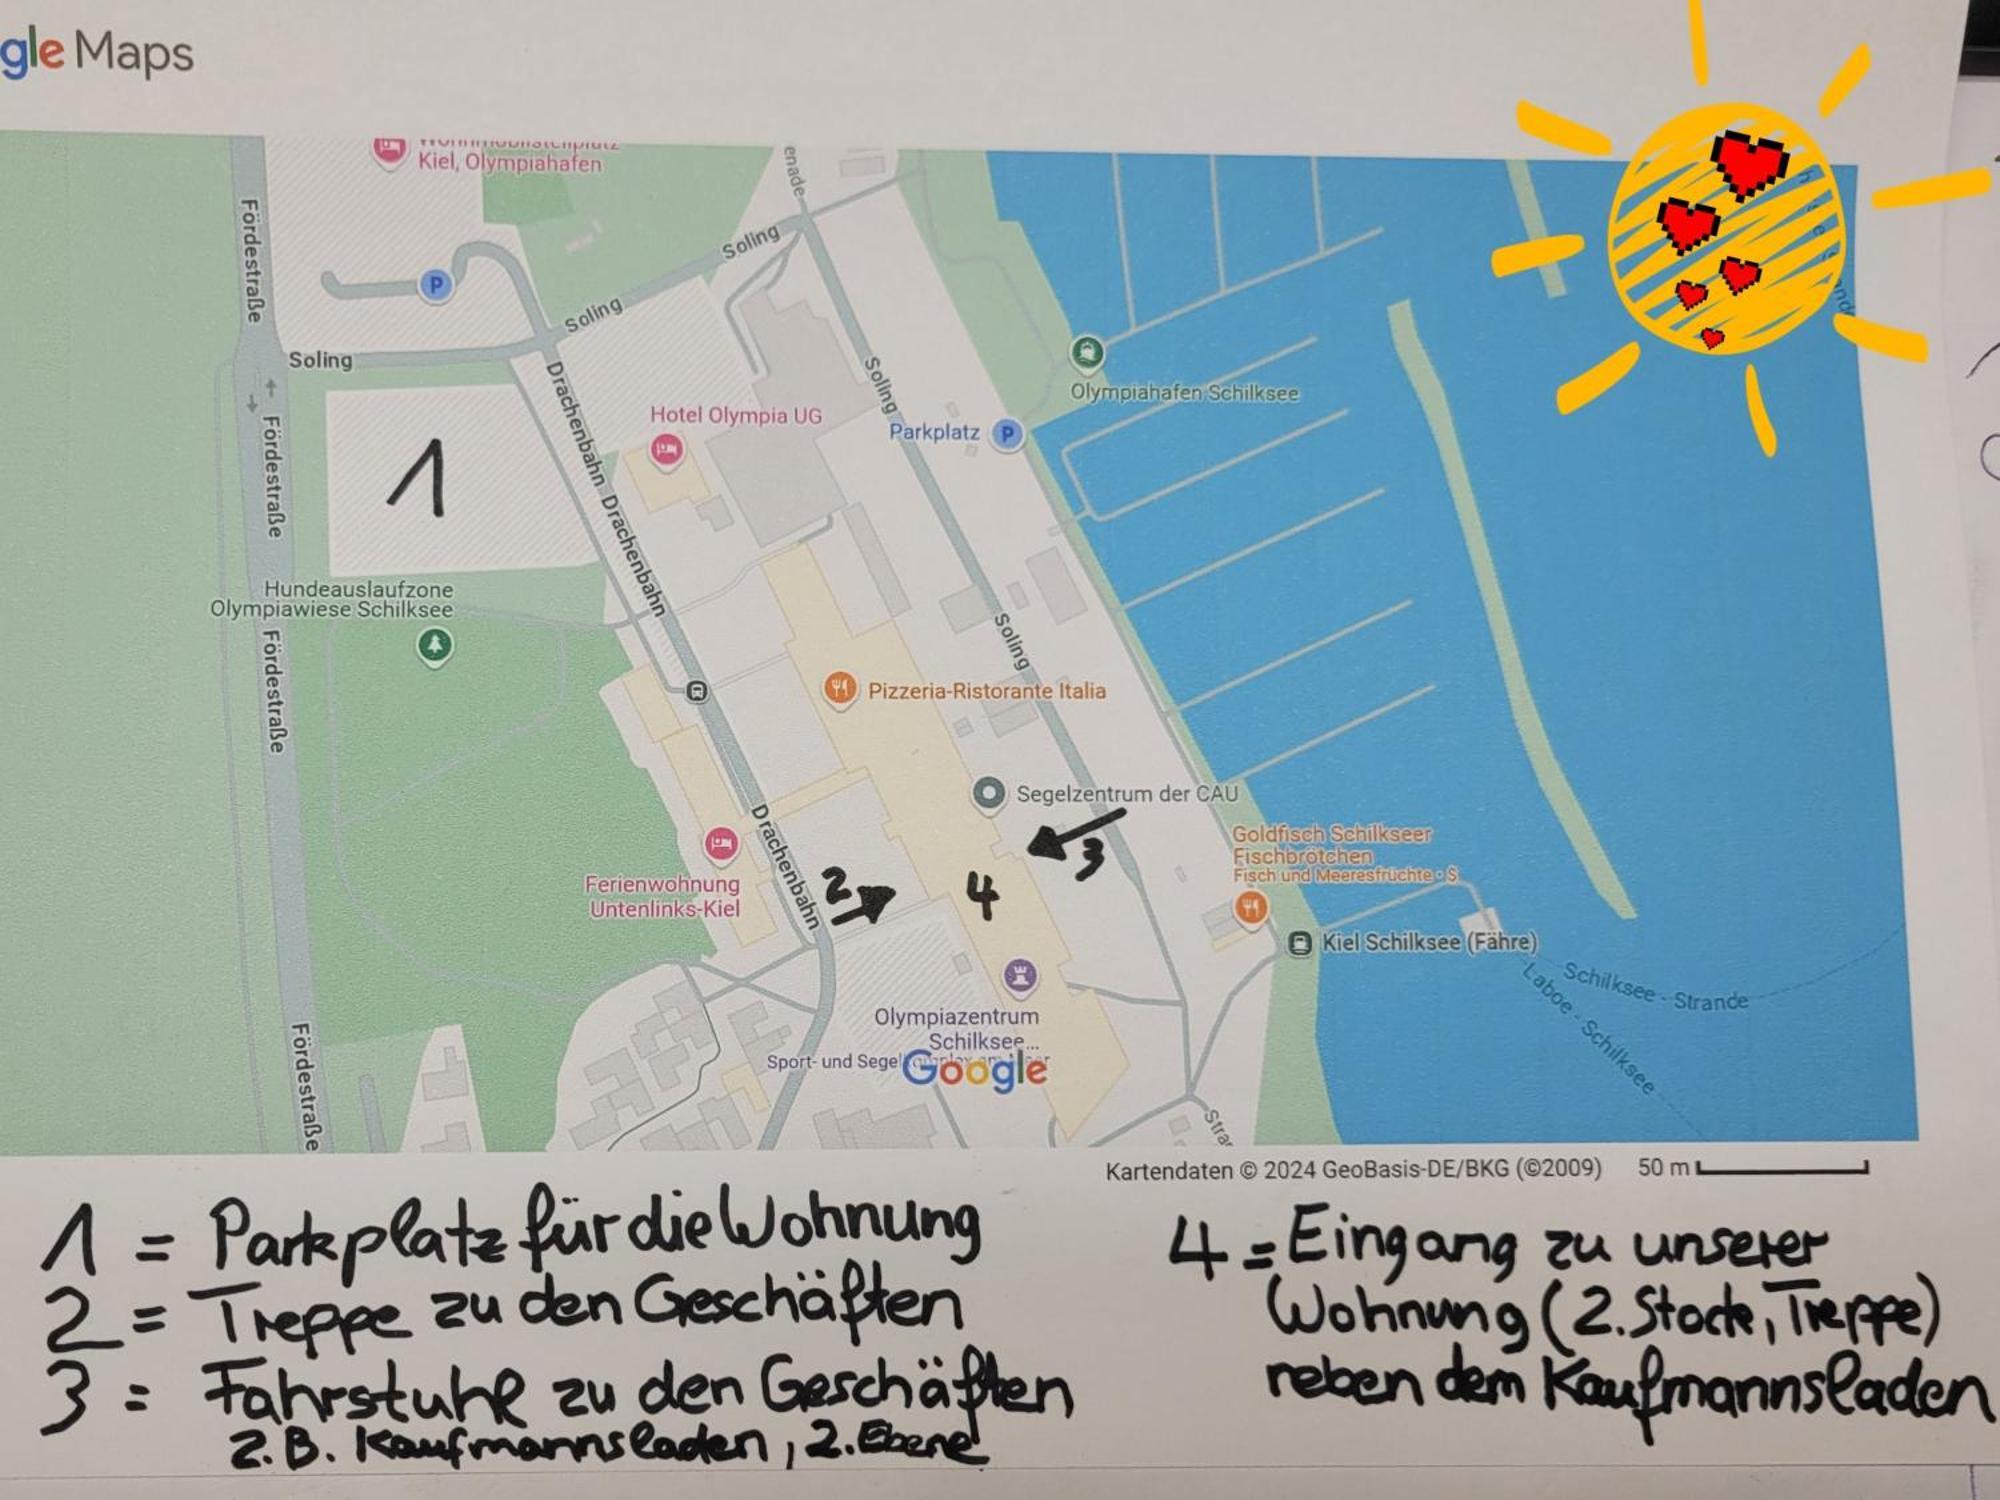 gle Maps
Kiel, Olympiahafen
enade
Fördestraße
P
Soling
Soling
Soling
Fördestraße
Drachenbahn
Drachenbahn
Hotel Olympia UG
Soling
Parkplatz P
Olympiahafen Schilksee
1
Hundeauslaufzone
Olympiawiese Schilksee
Fördestraße
Soling
Pizzeria-Ristorante Italia
Segelzentrum der CAU
3
Drachenbahn
2
4
Ferienwohnung
Untenlinks-Kiel
Goldfisch Schilkseer
Fischbrötchen
Fisch und Meeresfrüchte · $
Kiel Schilksee (Fähre)
Schilksee - Strande
Laboe - Schilksee
Olympiazentrum
Schilksee...
Sport- und Segel
Google
Fördestraße
Stra
Kartendaten © 2024 GeoBasis-DE/BKG (©2009) 50 m
1 = Parkplatz für die Wohnung
2 = Treppe zu den Geschäften
3 = Fahrstuhl zu den Geschäften
z.B. Kaufmannsladen, 2. Ebene
4 = Eingang zu unserer
Wohnung (2. Stock, Treppe)
neben dem Kaufmannsladen